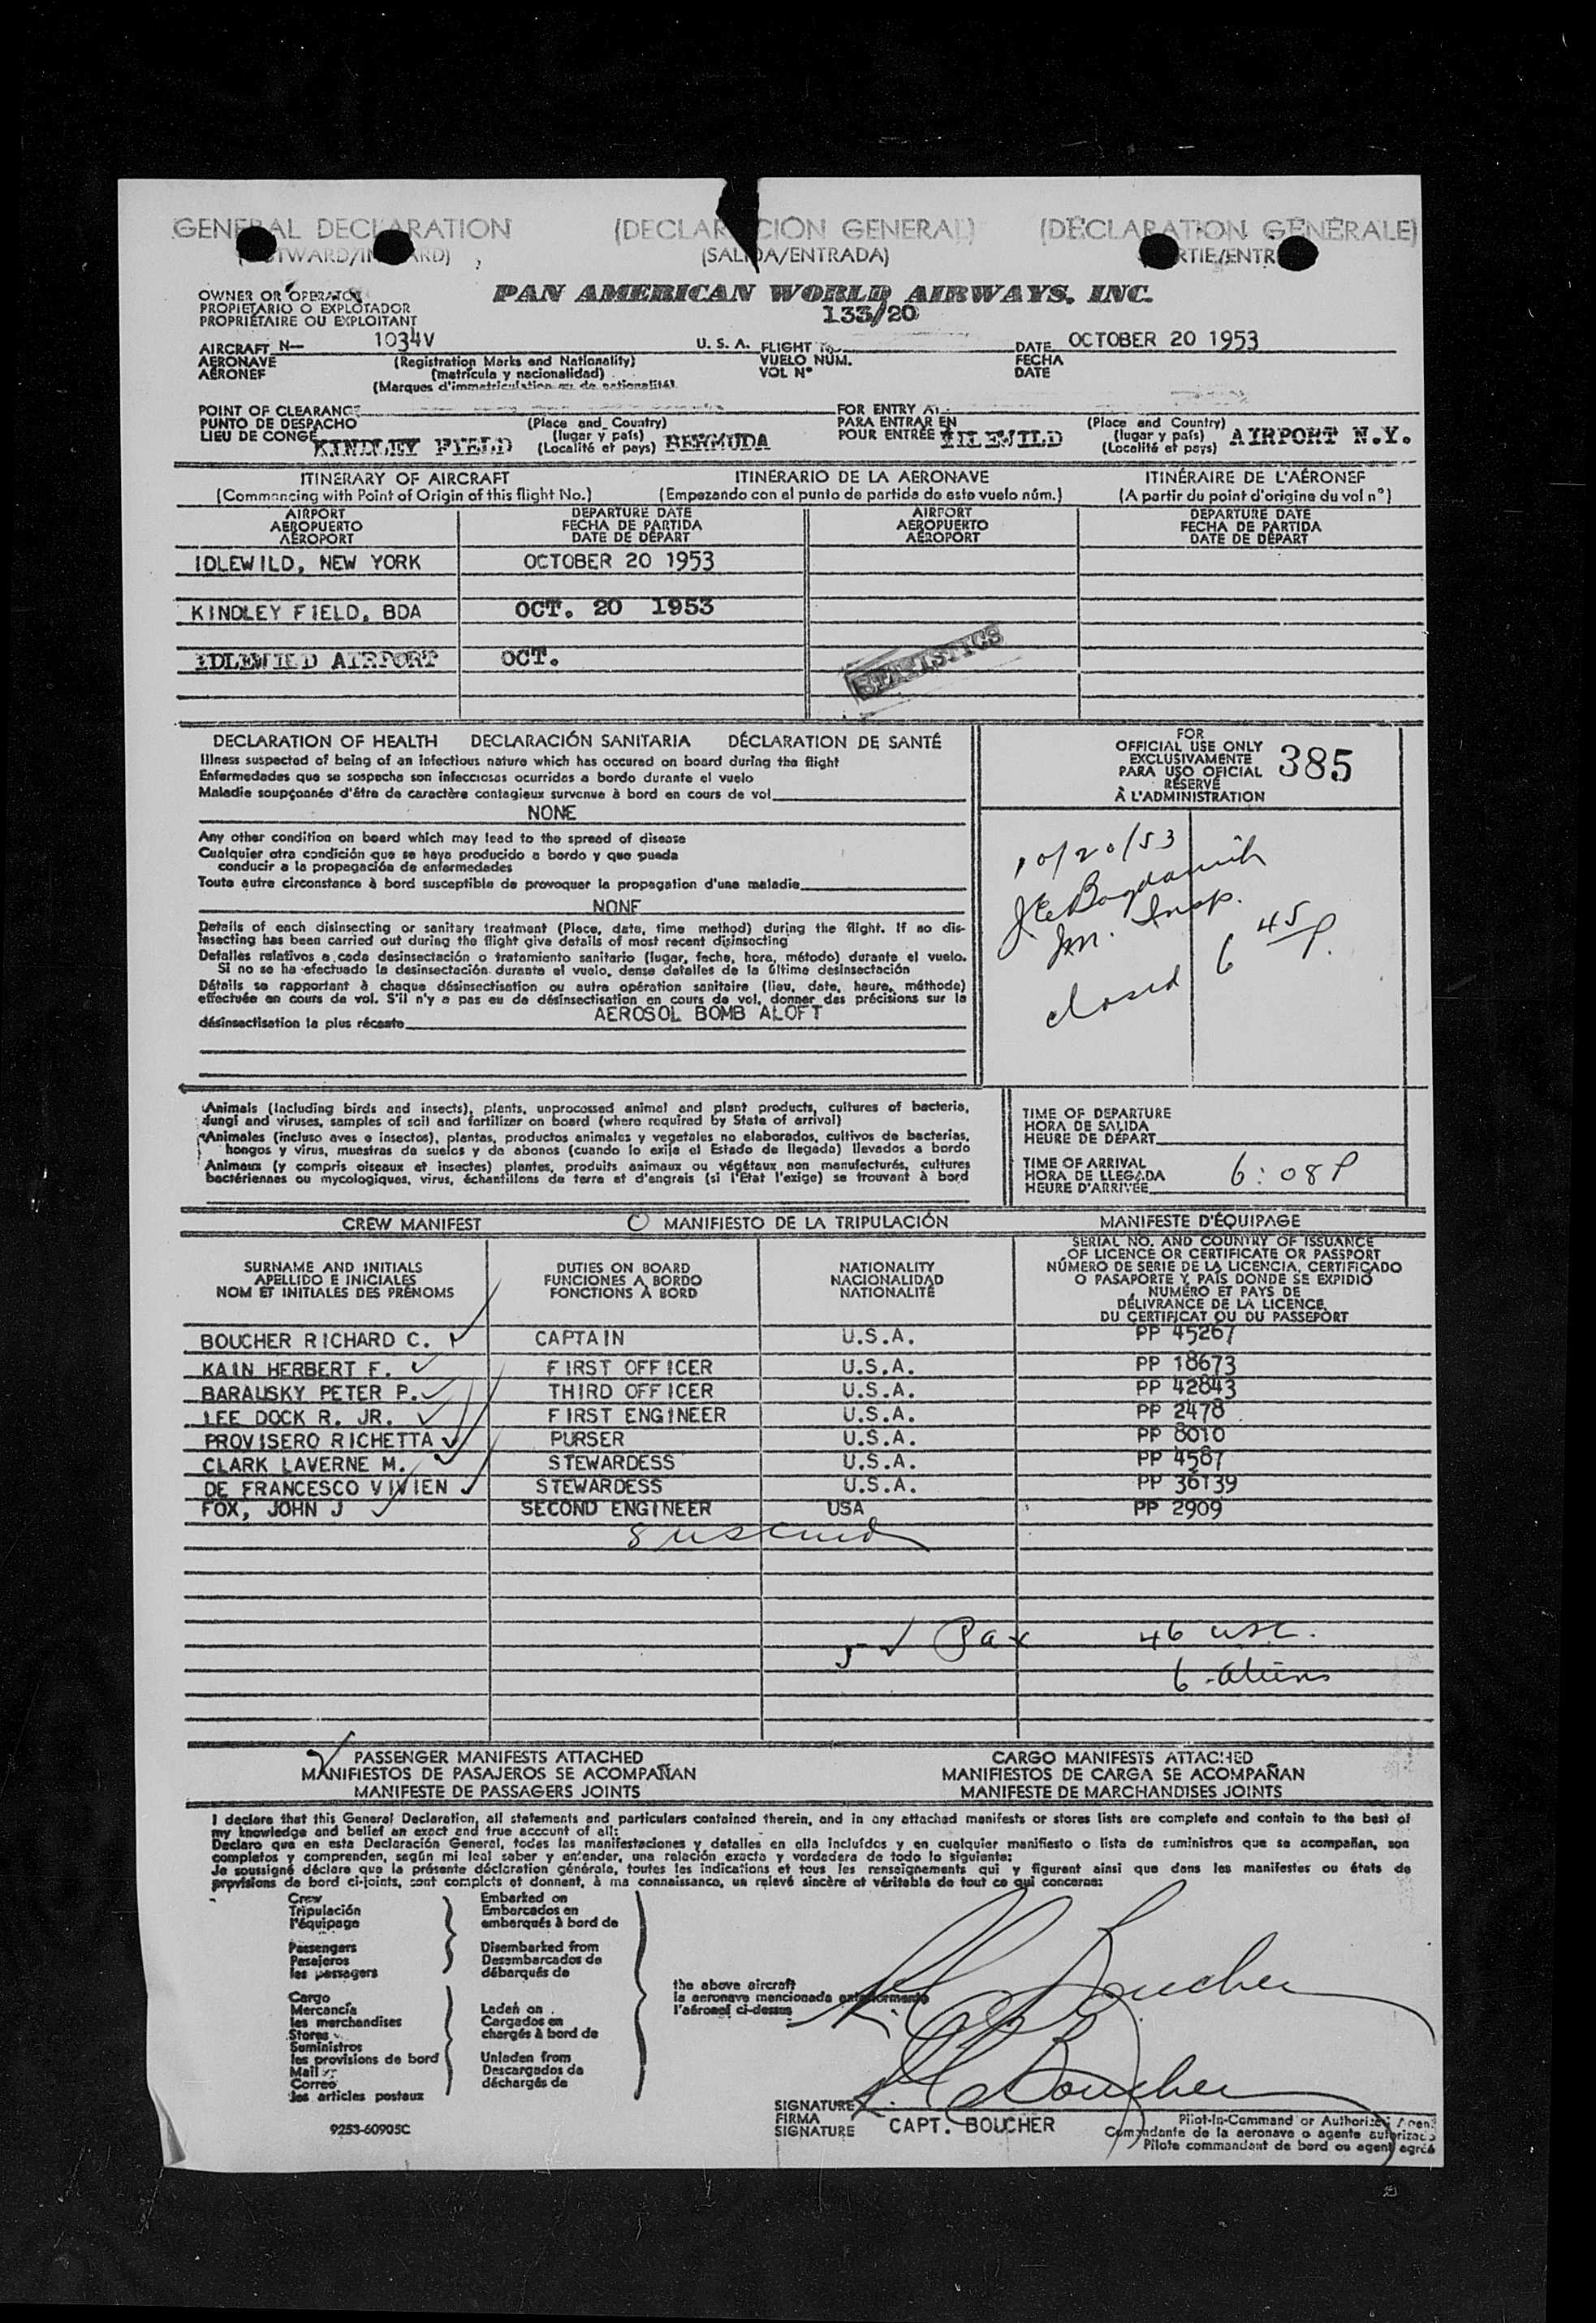 GENERAL DECLARATION (DECLARACIÓN GENERAL) (DÉCLARATION GÉNÉRALE)
(OUTWARD/INWARD) (SALIDA/ENTRADA) (SORTIE/ENTRÉE)
OWNER OR OPERATOR
PROPIETARIO O EXPLOTADOR
PROPRIÉTAIRE OU EXPLOITANT
PAN AMERICAN WORLD AIRWAYS, INC.
133/20
AIRCRAFT N— 1034V U. S. A. FLIGHT No. DATE OCTOBER 20 1953
AERONAVE (Registration Marks and Nationality) VUELO NÚM. FECHA
AÉRONEF (matrícula y nacionalidad) VOL Nº DATE
(Marques d'immatriculation ou de nationalité)
POINT OF CLEARANCE FOR ENTRY AT
PUNTO DE DESPACHO (Place and Country) PARA ENTRAR EN (Place and Country)
LIEU DE CONGÉ KINDLEY FIELD (lugar y país) (Localité et pays) BERMUDA POUR ENTRÉE IDLEWILD (lugar y país) (Localité et pays) AIRPORT N.Y.
ITINERARY OF AIRCRAFT ITINERARIO DE LA AERONAVE ITINÉRAIRE DE L'AÉRONEF
(Commencing with Point of Origin of this flight No.) (Empezando con el punto de partida de este vuelo núm.) (A partir du point d'origine du vol nº)
AIRPORT DEPARTURE DATE AIRPORT DEPARTURE DATE
AEROPUERTO FECHA DE PARTIDA AEROPUERTO FECHA DE PARTIDA
AÉROPORT DATE DE DÉPART AÉROPORT DATE DE DÉPART
IDLEWILD, NEW YORK OCTOBER 20 1953
KINDLEY FIELD, BDA OCT. 20 1953
IDLEWILD AIRPORT OCT.
STATISTICS
DECLARATION OF HEALTH DECLARACIÓN SANITARIA DÉCLARATION DE SANTÉ
Illness suspected of being of an infectious nature which has occured on board during the flight
Enfermedades que se sospecha son infecciosas ocurridas a bordo durante el vuelo
Maladie soupçonnée d'être de caractère contagieux survenue à bord en cours de vol
NONE
Any other condition on board which may lead to the spread of disease
Cualquier otra condición que se haya producido a bordo y que pueda
conducir a la propagación de enfermedades
Toute autre circonstance à bord susceptible de provoquer la propagation d'une maladie
NONE
Details of each disinsecting or sanitary treatment (Place, date, time method) during the flight. If no dis-
insecting has been carried out during the flight give details of most recent disinsecting
Detalles relativos a cada desinsectación o tratamiento sanitario (lugar, fecha, hora, método) durante el vuelo.
Si no se ha efectuado la desinsectación durante el vuelo, dense detalles de la última desinsectación
Détails se rapportant à chaque désinsectisation ou autre opération sanitaire (lieu, date, heure, méthode)
effectuée en cours de vol. S'il n'y a pas eu de désinsectisation en cours de vol, donner des précisions sur la
désinsectisation la plus récente AEROSOL BOMB ALOFT
FOR
OFFICIAL USE ONLY
EXCLUSIVAMENTE
PARA USO OFICIAL
RÉSERVÉ
À L'ADMINISTRATION
385
10/20/53
Insp.
closed 6 45 P.
Animals (including birds and insects), plants, unprocessed animal and plant products, cultures of bacteria,
fungi and viruses, samples of soil and fertilizer on board (where required by State of arrival)
Animales (incluso aves e insectos), plantas, productos animales y vegetales no elaborados, cultivos de bacterias,
hongos y virus, muestras de suelos y de abonos (cuando lo exija el Estado de llegada) llevados a bordo
Animaux (y compris oiseaux et insectes) plantes, produits animaux ou végétaux non manufacturés, cultures
bactériennes ou mycologiques, virus, échantillons de terre et d'engrais (si l'État l'exige) se trouvant à bord
TIME OF DEPARTURE
HORA DE SALIDA
HEURE DE DÉPART
TIME OF ARRIVAL
HORA DE LLEGADA
HEURE D'ARRIVÉE 6:08 P
CREW MANIFEST MANIFIESTO DE LA TRIPULACIÓN MANIFESTE D'ÉQUIPAGE
SURNAME AND INITIALS
APELLIDO E INICIALES
NOM ET INITIALES DES PRÉNOMS
DUTIES ON BOARD
FUNCIONES A BORDO
FONCTIONS À BORD
NATIONALITY
NACIONALIDAD
NATIONALITÉ
SERIAL NO. AND COUNTRY OF ISSUANCE
OF LICENCE OR CERTIFICATE OR PASSPORT
NÚMERO DE SERIE DE LA LICENCIA, CERTIFICADO
O PASAPORTE Y PAÍS DONDE SE EXPIDIÓ
NUMÉRO ET PAYS DE
DÉLIVRANCE DE LA LICENCE,
DU CERTIFICAT OU DU PASSEPORT
BOUCHER RICHARD C. CAPTAIN U.S.A. PP 45267
KAIN HERBERT F. FIRST OFFICER U.S.A. PP 18673
BARAUSKY PETER P. THIRD OFFICER U.S.A. PP 42843
LEE DOCK R. JR. FIRST ENGINEER U.S.A. PP 2478
PROVISERO RICHETTA PURSER U.S.A. PP 8010
CLARK LAVERNE M. STEWARDESS U.S.A. PP 4587
DE FRANCESCO VIVIEN STEWARDESS U.S.A. PP 36139
FOX, JOHN J SECOND ENGINEER USA PP 2909
Pax 46 usc.
6 aliens
PASSENGER MANIFESTS ATTACHED CARGO MANIFESTS ATTACHED
MANIFIESTOS DE PASAJEROS SE ACOMPAÑAN MANIFIESTOS DE CARGA SE ACOMPAÑAN
MANIFESTE DE PASSAGERS JOINTS MANIFESTE DE MARCHANDISES JOINTS
I declare that this General Declaration, all statements and particulars contained therein, and in any attached manifests or stores lists are complete and contain to the best of
my knowledge and belief an exact and true account of all:
Declaro que en esta Declaración General, todas las manifestaciones y detalles en ella incluídos y en cualquier manifiesto o lista de suministros que se acompañan, son
completos y comprenden, según mi leal saber y entender, una relación exacta y verdadera de todo lo siguiente:
Je soussigné déclare que la présente déclaration générale, toutes les indications et tous les renseignements qui y figurent ainsi que dans les manifestes ou états de
provisions de bord ci-joints, sont complets et donnent, à ma connaissance, un relevé sincère et véritable de tout ce qui concerne:
Crew
Tripulación
l'équipage
Passengers
Pasajeros
les passagers
Cargo
Mercancía
les marchandises
Stores
Suministros
les provisions de bord
Mail
Correo
les articles postaux
Embarked on
Embarcados en
embarqués à bord de
Disembarked from
Desembarcados de
débarqués de
Laden on
Cargados en
chargés à bord de
Unladen from
Descargados de
déchargés de
the above aircraft
la aeronave mencionada anteriormente
l'aéronef ci-dessus
R. C. Boucher
R. C. Boucher
SIGNATURE
FIRMA
SIGNATURE
CAPT. BOUCHER
Pilot-In-Command or Authorized Agent
Comandante de la aeronave o agente autorizado
Pilote commandant de bord ou agent agréé
9253-60905C